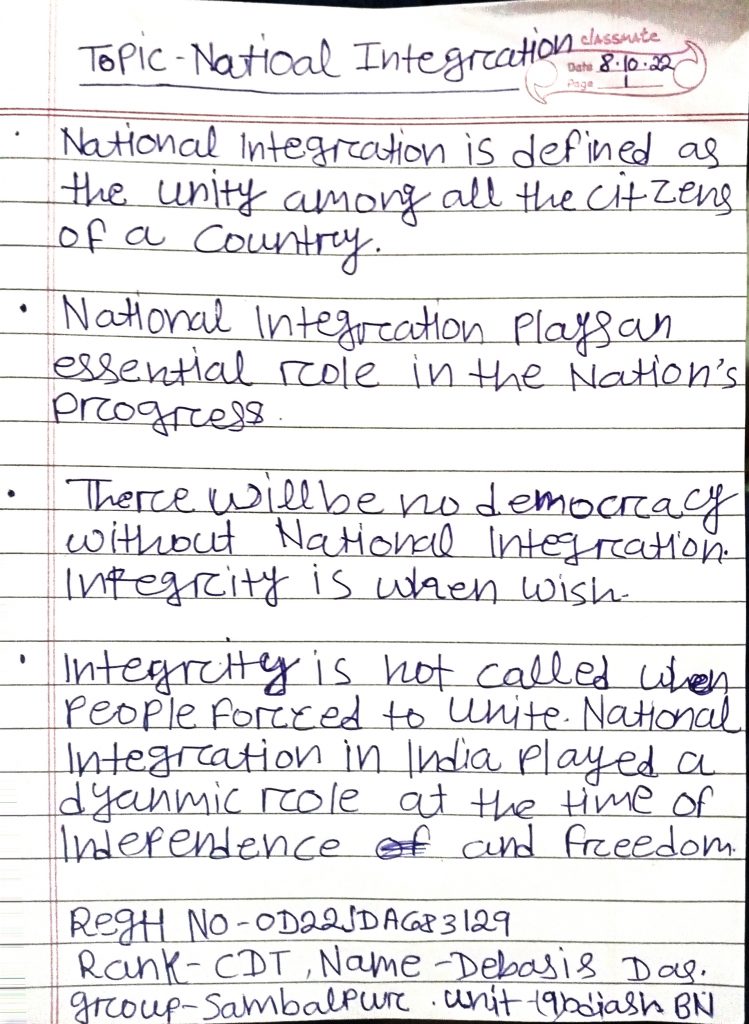 Topic - Natioal Integration
classmate
Date 8.10.22
Page 1
National Integration is defined as
the unity among all the citzens
of a country.
National Integration plays an
essential role in the Nation's
progress.
There will be no democracy
without National Integration.
Integrity is when wish.
Integrity is not called when
people forced to unite. National
Integration in India played a
dyanmic role at the time of
Independence and freedom.
Regtl No - OD22SDA683129
Rank - CDT, Name - Debasis Das.
group - Sambalpur. unit - BN